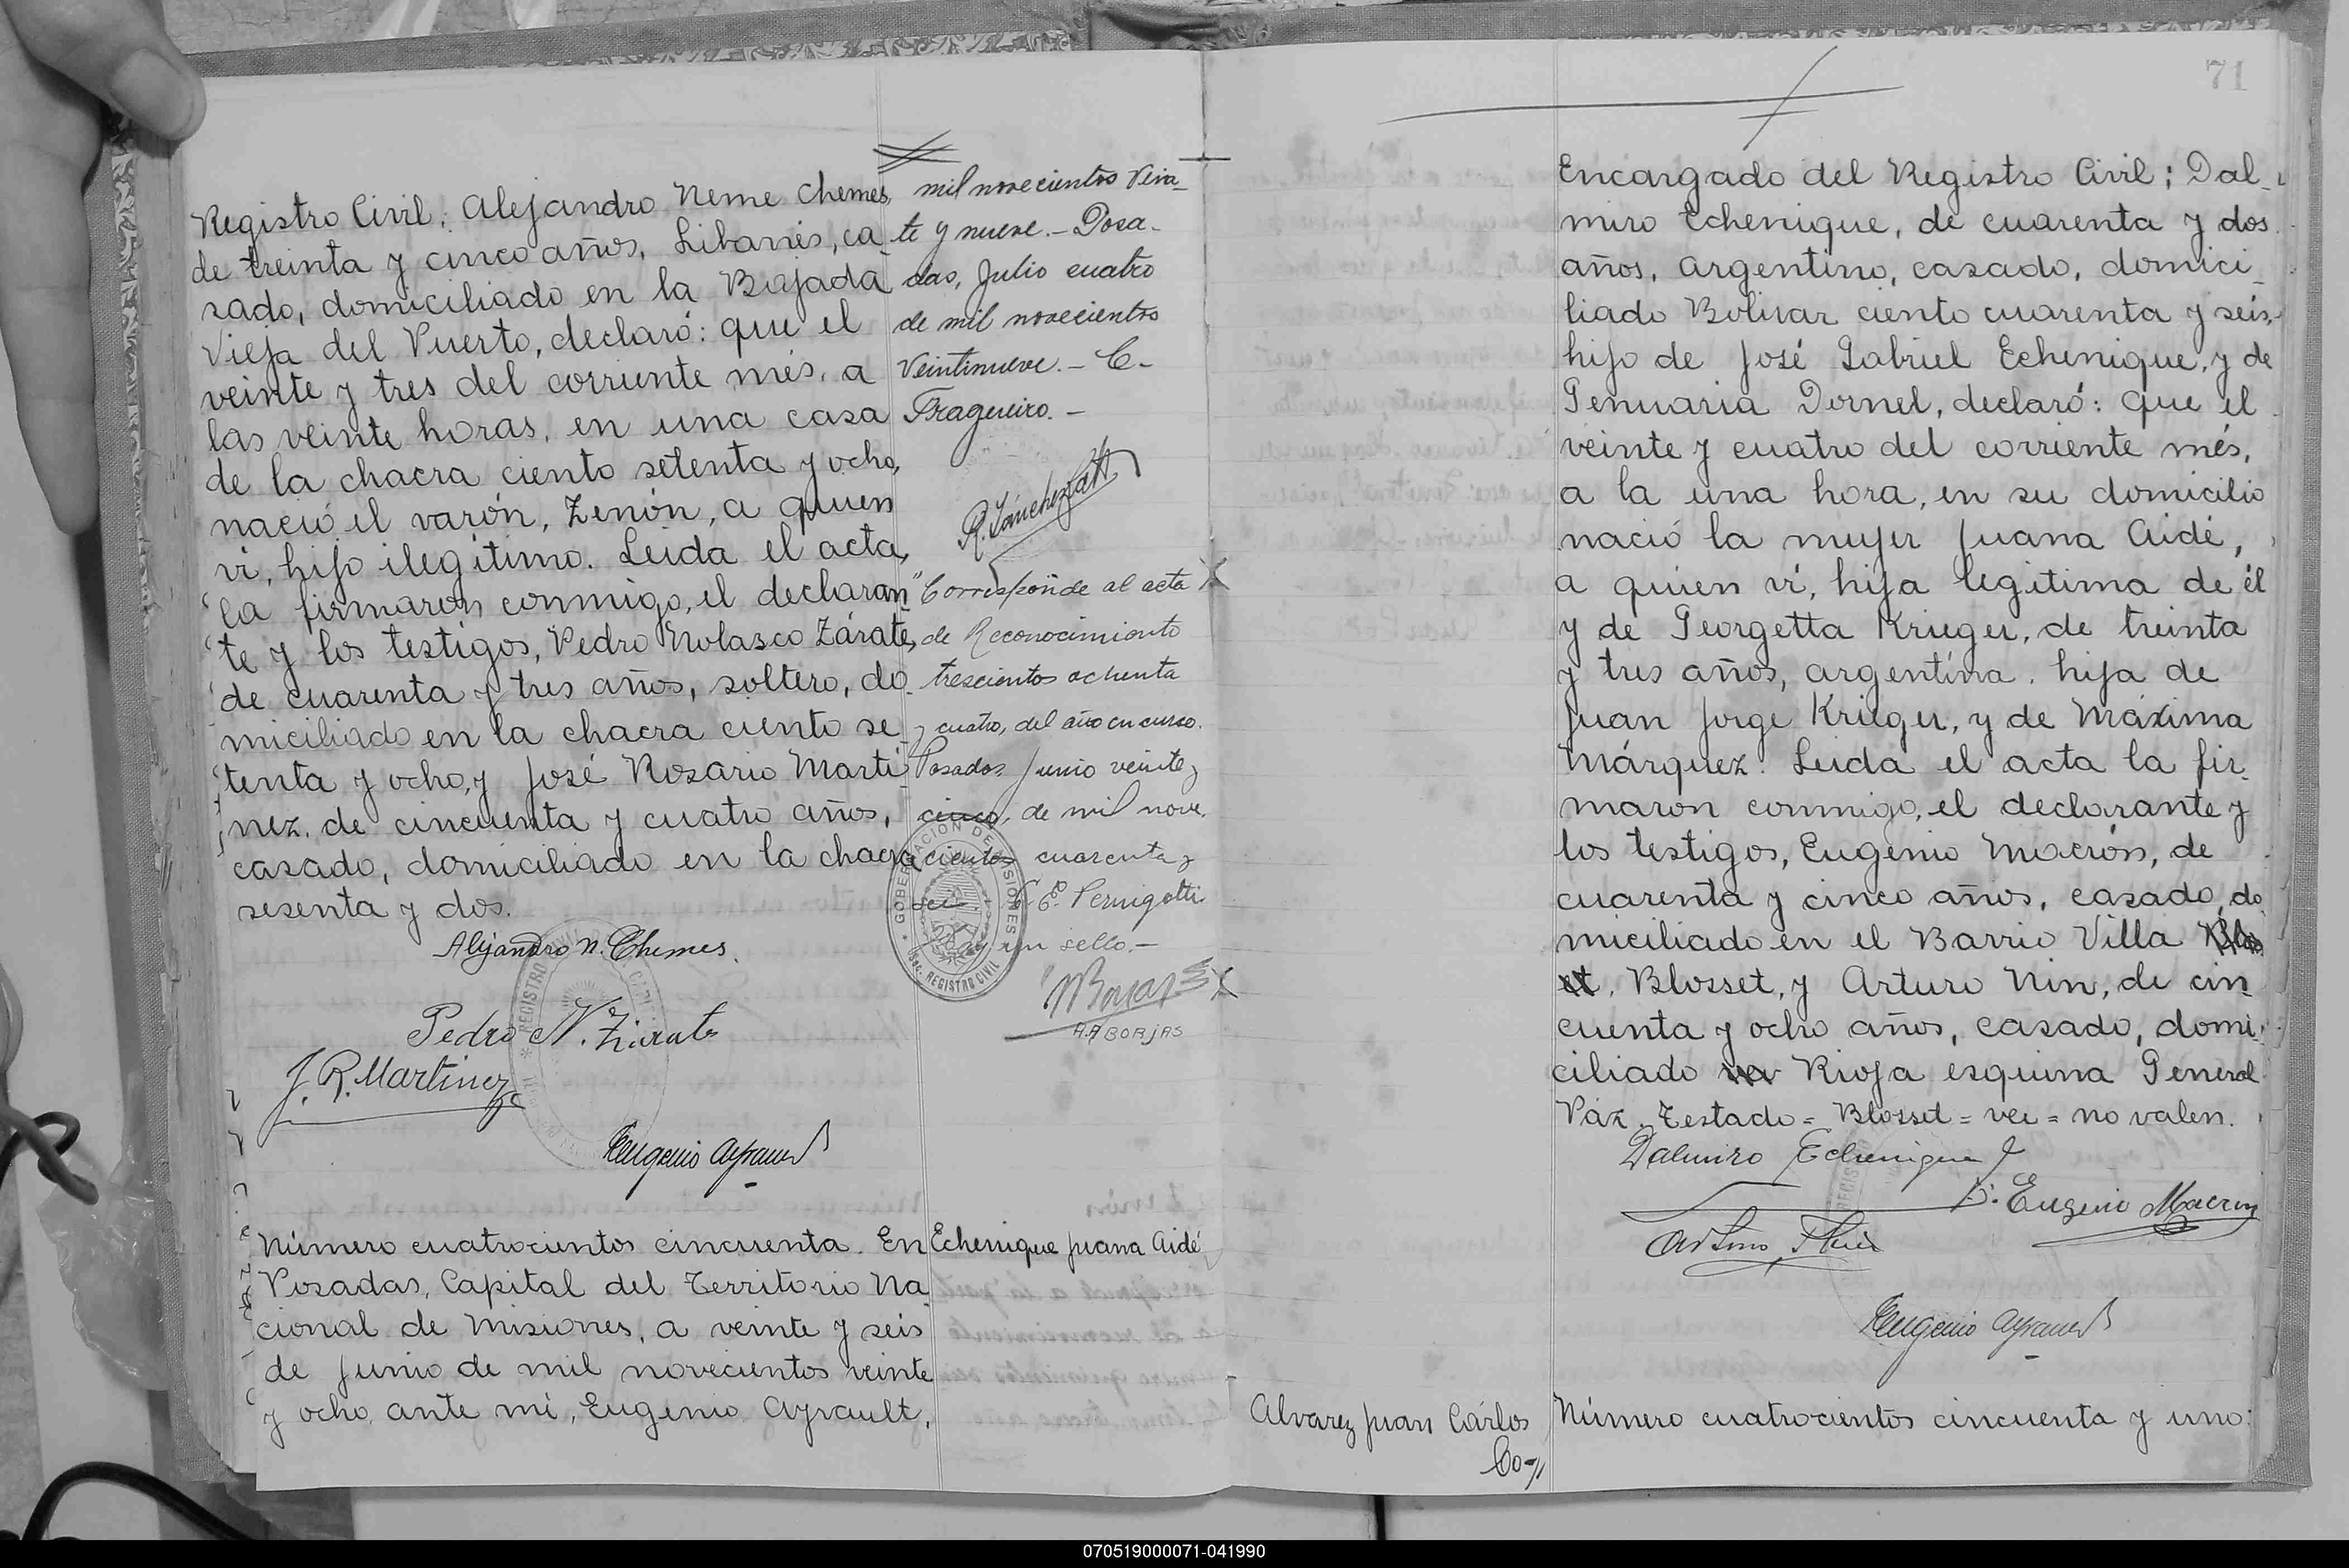 Registro Civil: Alejandro Neme Chemes,
de treinta y cinco años, Libanés, ca
sado, domiciliado en la Bajada
Vieja del Puerto, declaró: que el
veinte y tres del corriente més, a
las veinte horas, en una casa
de la chacra ciento setenta y ocho,
nació el varón, Zenón, a quien
ví, hijo ilegítimo. Leida el acta,
la firmaron conmigo, el declaran
te y los testigos, Pedro Nolasco Zárate,
de cuarenta y tres años, soltero, do
miciliado en la chacra ciento se
tenta y ocho, y José Rosario Martí
nez, de cincuenta y cuatro años,
casado, domiciliado en la chacra
sesenta y dos.
Alejandro N. Chemes.
Pedro N. Zárate
J. R. Martinez
Eugenio Ayrault
mil novecientos vein
te y nueve.- Posa-
das, Julio cuatro
de mil novecientos
veintinueve.- C-
Fragueiro.-
"Corresponde al acta
de Reconocimiento
trescientos ochenta
y cuatro, del año en curso.
Posadas, Junio veinte y
cinco, de mil nove.
cientos cuarenta y
E. Pernigotti
Hay un sello.-
A.A BORJAS
GOBERNACION DE MISIONES
REGISTRO CIVIL
Número cuatrocientos cincuenta. En
Posadas, Capital del Territorio Na
cional de Misiones, a veinte y seis
de Junio de mil novecientos veinte
y ocho, ante mí, Eugenio Ayrault,
Echenique Juana Aidé
71
Encargado del Registro Civil; Dal
miro Echenique, de cuarenta y dos
años, argentino, casado, domici
liado Bolivar ciento cuarenta y seis,
hijo de José Gabriel Echenique, y de
Genuaria Dornel, declaró: que el
veinte y cuatro del corriente més,
a la una hora, en su domicilio
nació la mujer Juana Aidé,
a quien ví, hija legítima de él
y de Georgetta Krieger, de treinta
y tres años, argentina, hija de
Juan Jorge Krieger, y de Máxima
Márquez. Leida el acta la fir
maron conmigo, el declarante y
los testigos, Eugenio Macrón, de
cuarenta y cinco años, casado, do
miciliado en el Barrio Villa
Blosset, y Arturo Nin, de cin
cuenta y ocho años, casado, domi
ciliado Rioja esquina General
Páz. Testado = Blosset = vei = no valen.
Dalmiro Echenique
Eugenio Macron
Arturo Nin
Eugenio Ayrault
Alvarez Juan Cárlos
Número cuatrocientos cincuenta y uno:
070519000071-041990